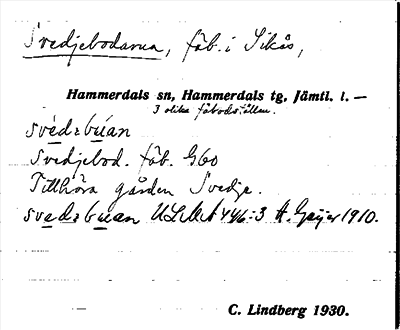 Svedjebodarna, fäb. i Sikås,
Hammerdals sn, Hammerdals tg, Jämtl. l. —
3 olika fäbodställen.
svédₔbúan
Svedjebod. fäb. G60
Tillhöra gården Svedje.
svedₔbuan ULMA 446:3 A. Geijer 1910.
C. Lindberg 1930.